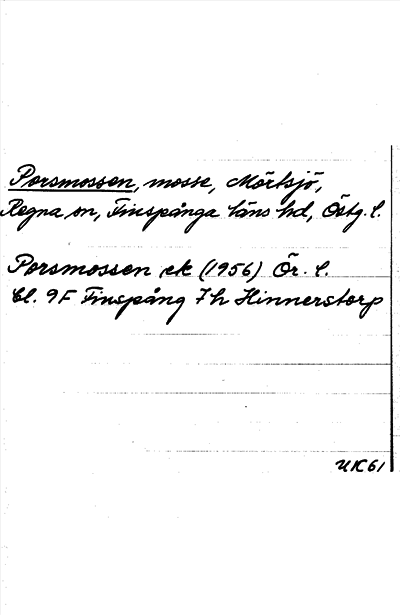 Porsmossen, mosse, Mörtsjö,
Regna sn, Finspånga läns hd, Östg. l.
Porsmossen ek (1956) Ör. l.
bl. 9F Finspång 7h Hinnerstorp
UK61